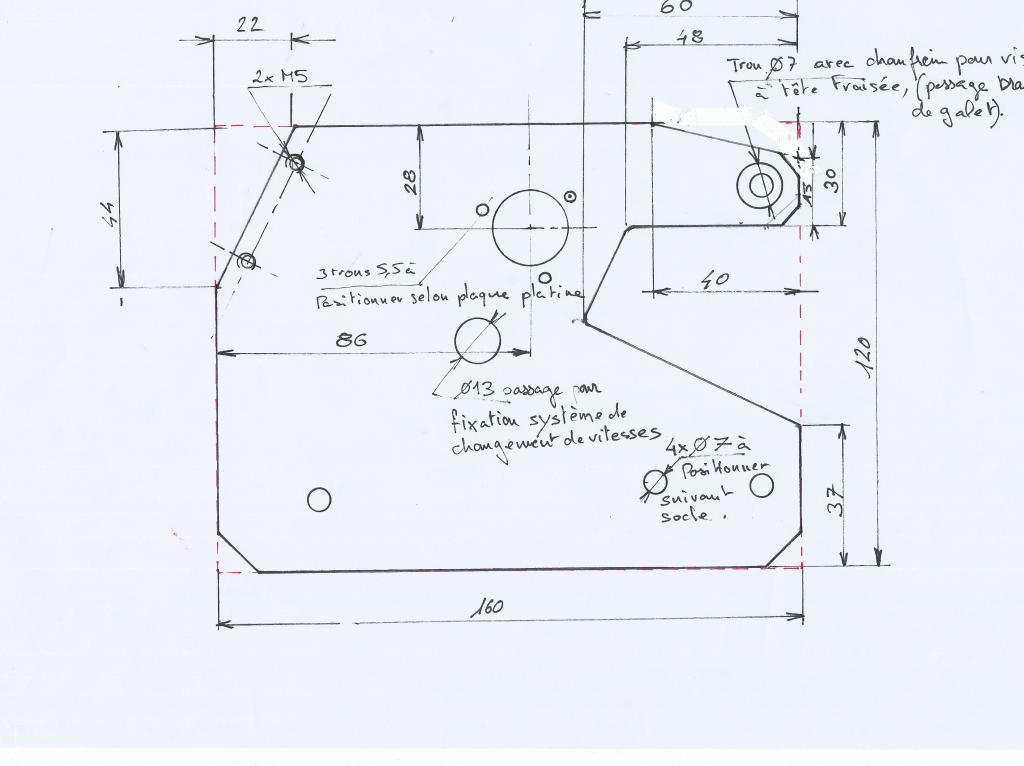 60
22
48
2x M5
Trou Ø7 avec chanfrein pour vis
à tête Fraisée, (passage
de galet).
28
44
15
30
3 trous 5,5 à
Positionner selon plaque platine
40
86
120
Ø13 passage pour
fixation système de
changement de vitesses
4x Ø 7 à
Positionner
suivant
socle .
37
160